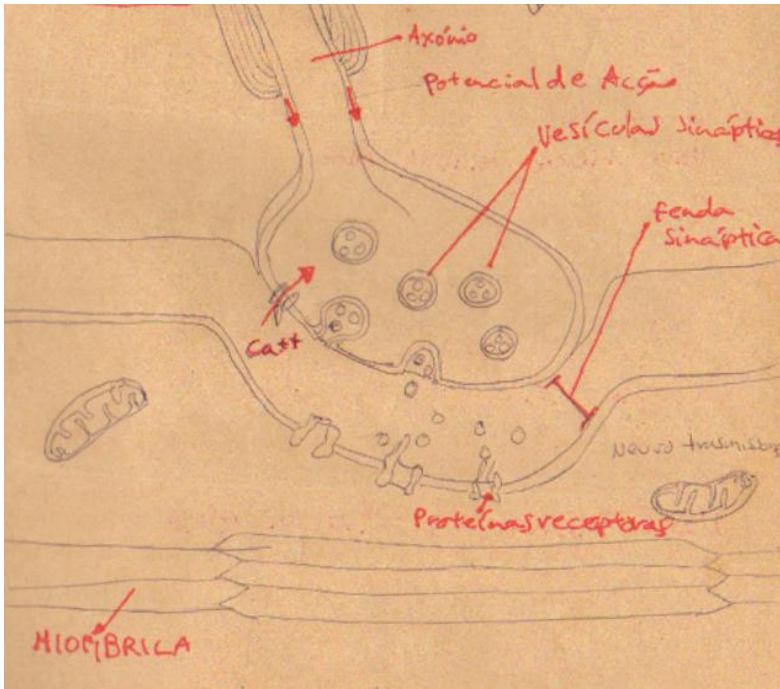 Axónio
Potencial de Acção
Vesículas Sinápticas
Fenda
Sináptica
Ca++
Proteínas receptoras
MIOFIBRICA